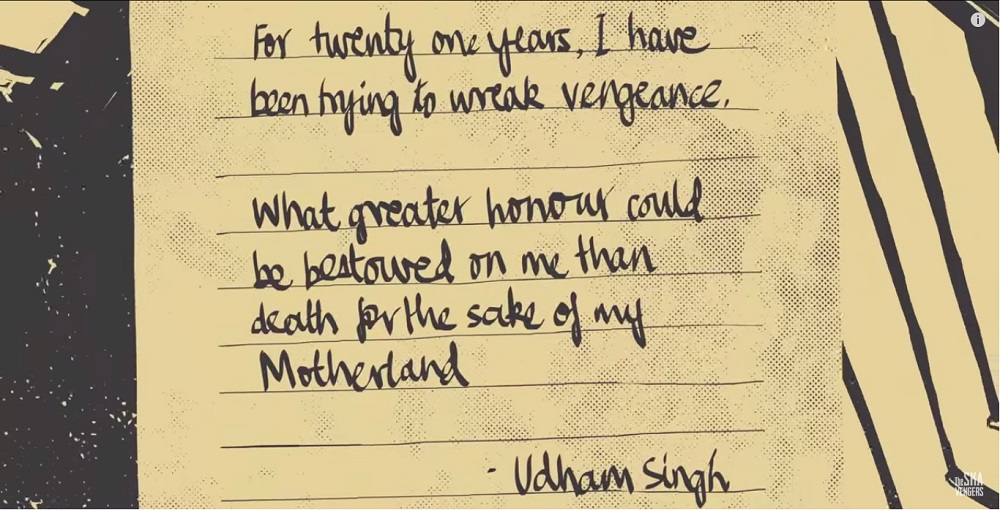 For twenty one years, I have
been trying to wreak vengeance.
What greater honour could
be bestowed on me than
death for the sake of my
Motherland
- Udham Singh
DeSHA
VENGERS